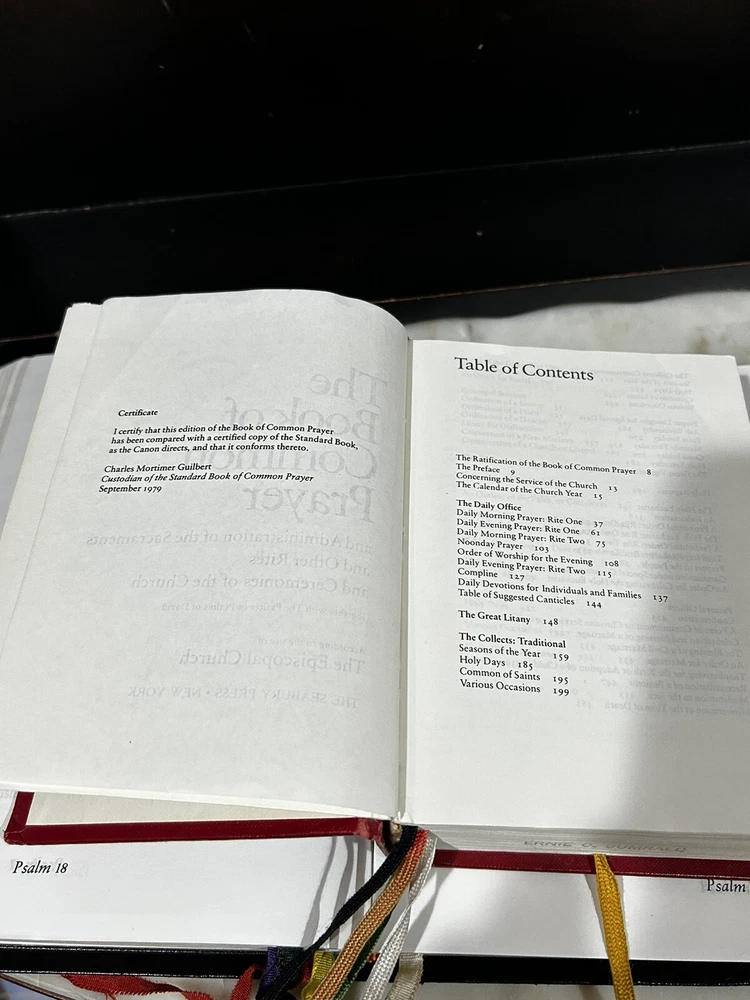 Certificate
I certify that this edition of the Book of Common Prayer
has been compared with a certified copy of the Standard Book,
as the Canon directs, and that it conforms thereto.
Charles Mortimer Guilbert
Custodian of the Standard Book of Common Prayer
September 1979
Table of Contents
The Ratification of the Book of Common Prayer 8
The Preface 9
Concerning the Service of the Church 13
The Calendar of the Church Year 15
The Daily Office
Daily Morning Prayer: Rite One 37
Daily Evening Prayer: Rite One 61
Daily Morning Prayer: Rite Two 75
Noonday Prayer 103
Order of Worship for the Evening 108
Daily Evening Prayer: Rite Two 115
Compline 127
Daily Devotions for Individuals and Families 137
Table of Suggested Canticles 144
The Great Litany 148
The Collects: Traditional
Seasons of the Year 159
Holy Days 185
Common of Saints 195
Various Occasions 199
Psalm 18
Psalm